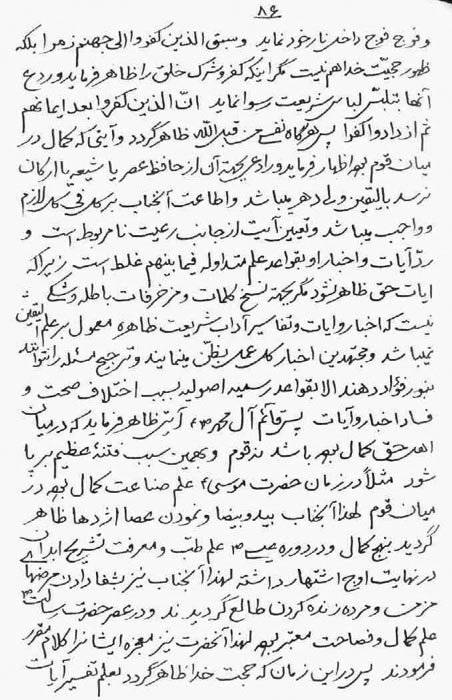 ۸۶
و فوج فوج داخل نار خود نماید و سیق الذین کفروا الی جهنم زمرا بلکه
ظهور حجیّت خدا هم نیست مگر اینکه کفر و شرک خلق را ظاهر فرماید و ردع
آنها بتلبّس لباس شریعت رسوا نماید انّ الذین کفروا بعد ایمانهم
ثم ازدادوا کفرا پس هرگاه نفسی من قبل الله ظاهر گردد و آیتی که کمال در
میان قوم بهم اظهار فرماید و رادعی بجهة آن از حافظ عصر یا شیعه یا ارکان
نرسد بالیقین ولی دهر میباشد و اطاعت آنجناب بر کل فی کل لازم
و واجب میباشد و تعیین آیت از جانب رعیت نامربوط است و
ردّ آیات و اخبار او بقواعد علم متداوله فیما بینهم غلط است زیرا که
ایات حق ظاهر نشود مگر بجهة نسخ کلمات و مزخرفات باطله و شکی
نیست که اخبار و روایات و تفاسیر آداب شریعت ظاهره معمول بر علم الیقین
نمیباشد و مجتهدین اخبار کل عمل بظنّ مینمایند و ترجیح مسئله را نتوانند
بنور فؤاد دهند الا بقواعد رسمیه اصولیه بسبب اختلاف صحت و
فساد اخبار و آیات پس قائم آل محمد ص ع آیتی ظاهر فرماید که در میان
اهل حق کمال بهم باشد نزد قوم و بهمین سبب فتنهٔ عظیم برپا
شود مثلاً در زمان حضرت موسی ع علم صناعت کمال بهم در
میان قوم لهذا آنجناب بید و بیضا و نمودن عصا اژدها ظاهر
گردید بنهج کمال و در دوره عیسی ع علم طبّ و معرفت تشریح ابدان
در نهایت اوج اشتهار داشته لهذا آنجناب نیز بشفا دادن مرضهای
مزمن و مرده زنده کردن طالع گردیدند و در عصر حضرت رسالت ص
علم کمال و فصاحت معتبر بهم لهذا آنحضرت نیز معجزه ایشانرا کلام مقرر
فرمودند پس در این زمان که حجت خدا ظاهر گردد بعلم تفسیر آیات